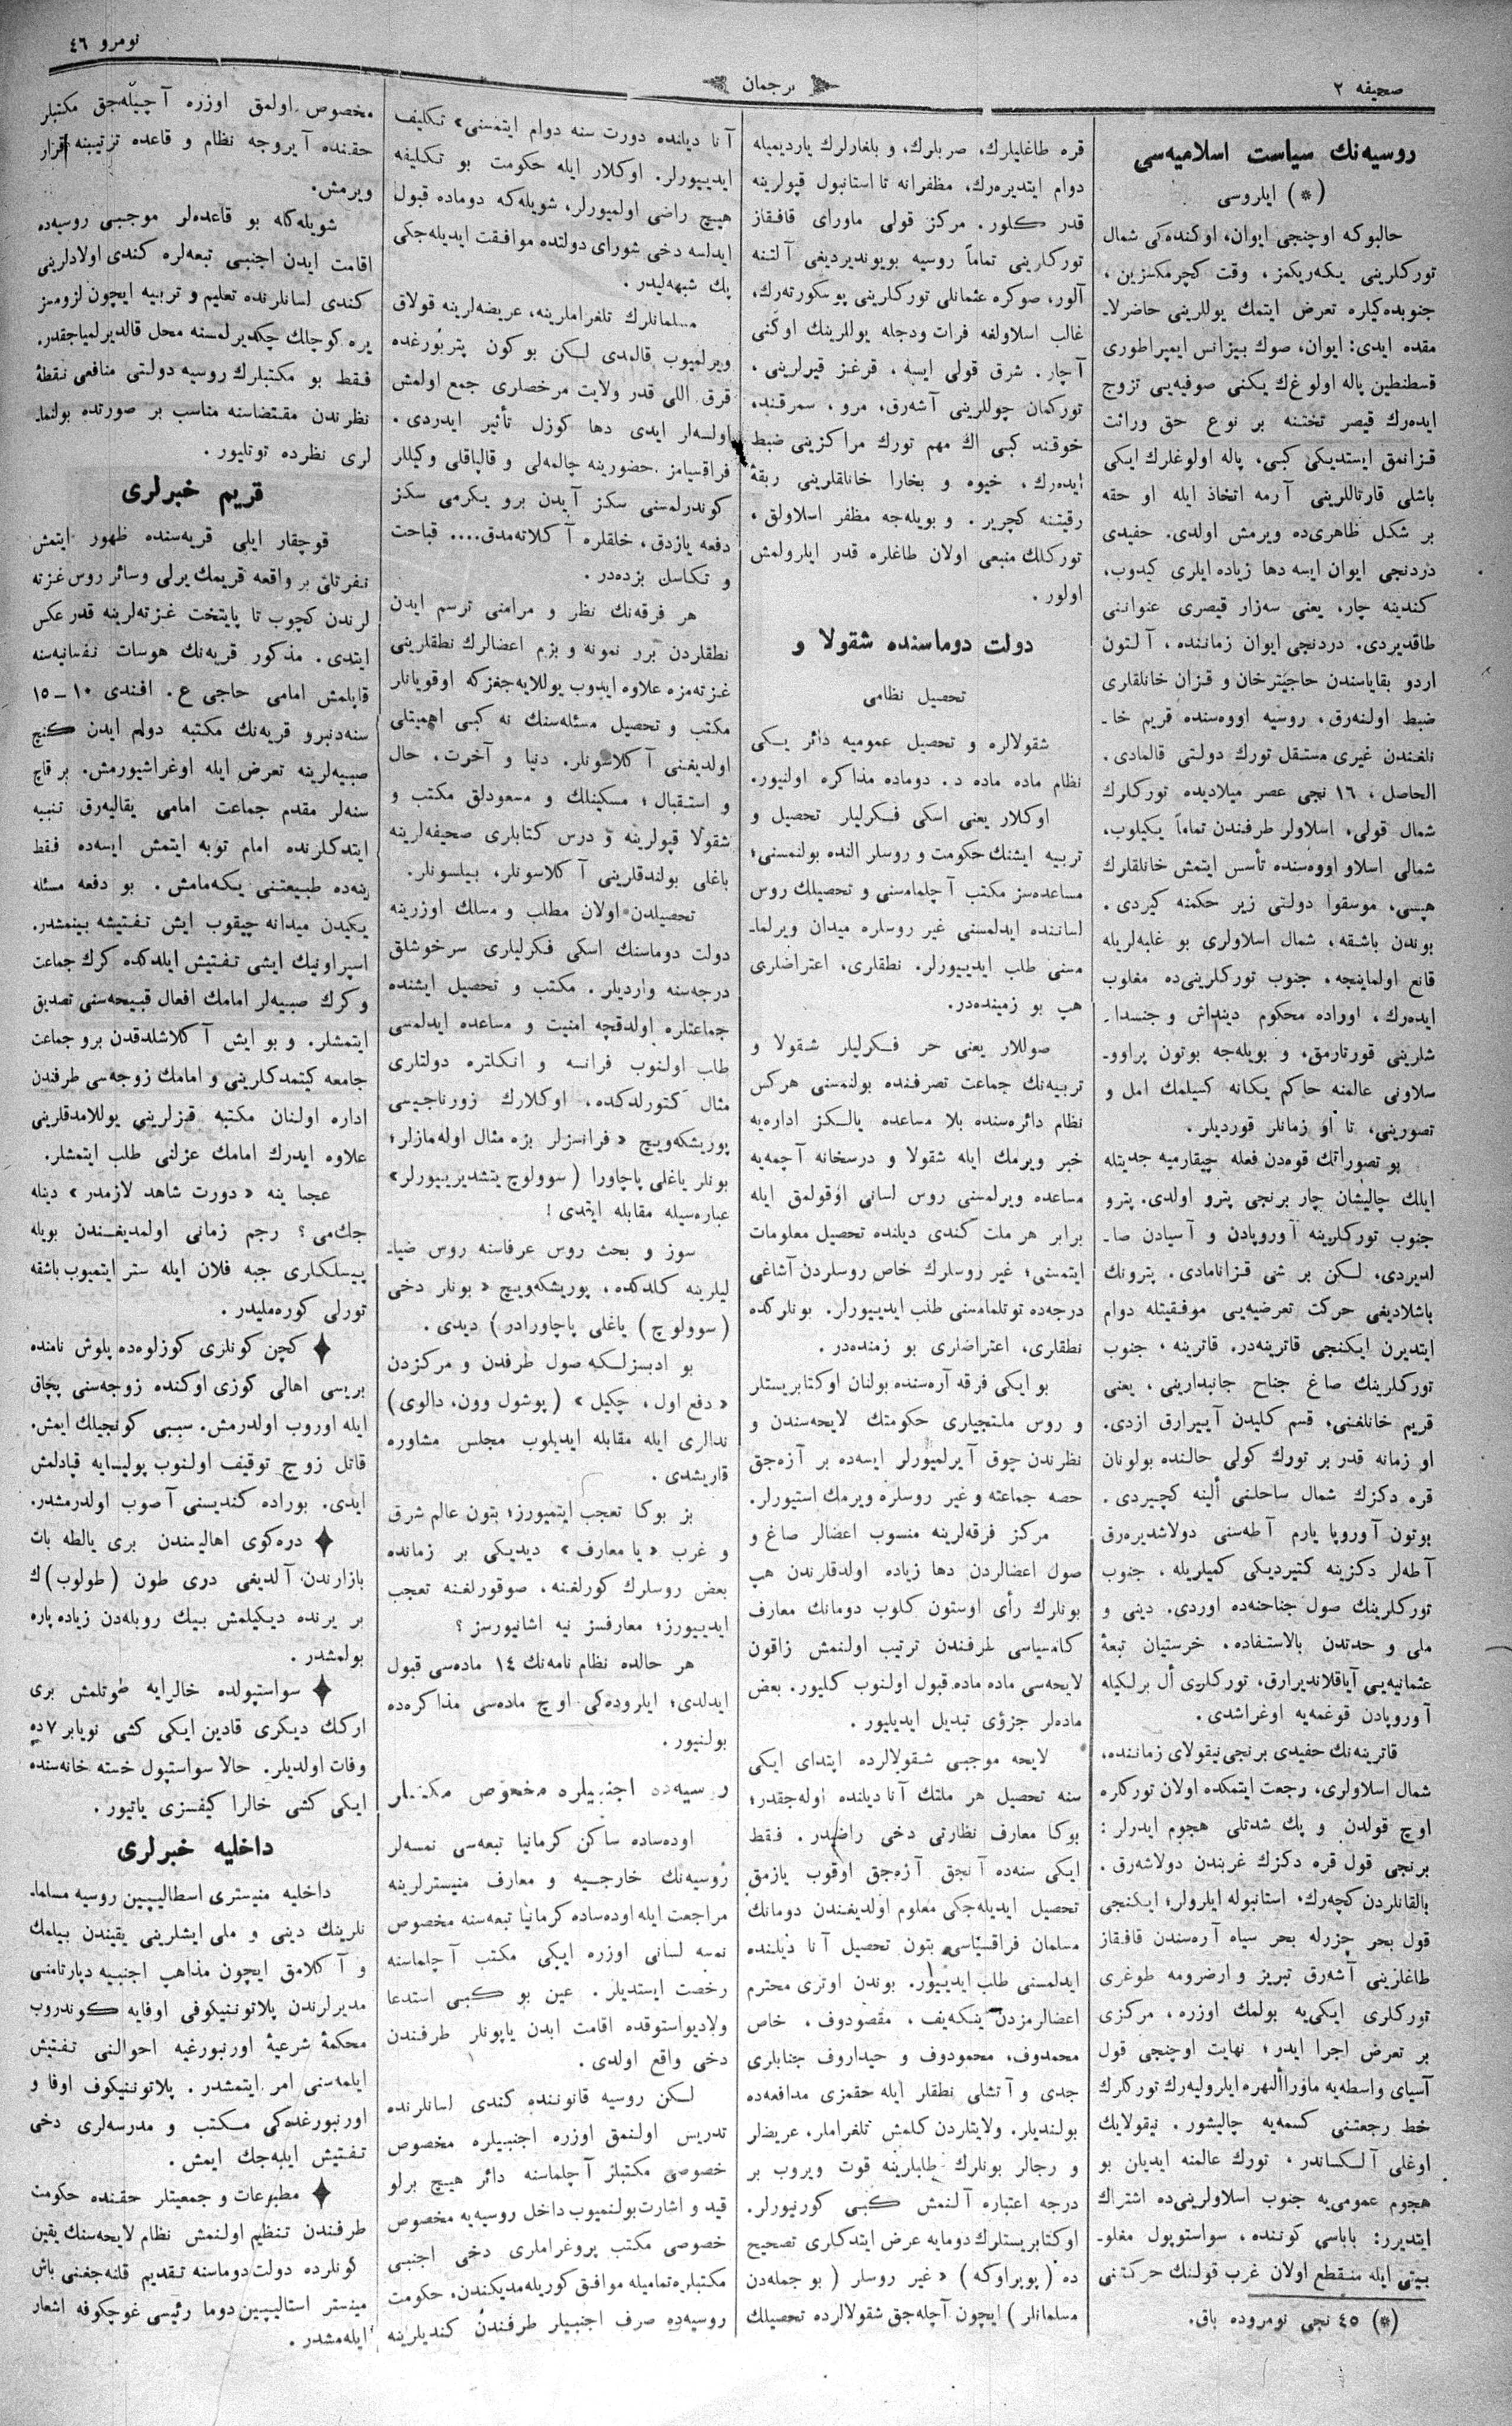 صحیفه ٢
ترجمان
نومرو ٤٦
روسیه‌نك سیاست اسلامیه‌سی
(*) ایلروسی
حالبوكه اوچنجی ایوان، اوكنده‌كی شمال
توركلرینی یكه‌ریكمز، وقت كچرمكسزین،
جنوبده‌كیلره تعرض ایتمك یوللرینی حاضرلا-
مقده ایدی: ایوان، صوك بیزانس ایمپراطوری
قسطنطین پاله اولوغ‌ك یكنی صوفیه‌یی تزوج
ایده‌رك قیصر تختنه بر نوع حق وراثت
قزانمق ایستدیكی كبی، پاله اولوغلرك ایكی
باشلی قارتاللرینی آرمه اتخاذ ایله او حقه
بر شكل ظاهری‌ده ویرمش اولدی. حفیدی
دردنجی ایوان ایسه دها زیاده ایلری كیدوب،
كندینه چار، یعنی سه‌زار قیصری عنواننی
طاقدیردی. دردنجی ایوان زماننده، آلتون
اردو بقایاسندن حاجیترخان و قزان خانلقلری
ضبط اولنه‌رق، روسیه اووه‌سنده قریم خا-
نلغندن غیری مستقل تورك دولتی قالمادی.
الحاصل، ١٦ نجی عصر میلادیده توركلرك
شمال قولی، اسلاولر طرفندن تماماً یكیلوب،
شمالی اسلاو اووه‌سنده تأسس ایتمش خانلقلرك
هپسی، موسقوا دولتی زیر حكمنه كیردی.
بوندن باشقه، شمال اسلاولری بو غلبه‌لریله
قانع اولماینجه، جنوب توركلرینی‌ده مغلوب
ایده‌رك، اوراده محكوم دینداش و جنسدا-
شلرینی قورتارمق، و بویله‌جه بوتون پراوو-
سلاونی عالمنه حاكم یكانه كسیلمك امل و
تصورینی، تا او زمانلر قوردیلر.
بو تصوراتك قوه‌دن فعله چیقارمیه جدیتله
ایلك چالیشان چار برنجی پترو اولدی. پترو
جنوب توركلرینه آوروپادن و آسیادن صا-
لدیردی، لكن بر شی قزانامادی. پترونك
باشلادیغی حركت تعرضیه‌یی موفقیتله دوام
ایتدیرن ایكنجی قاترینه‌در. قاترینه، جنوب
توركلرینك صاغ جناح جانبدارینی، یعنی
قریم خانلغنی، قسم كلیدن آییرارق ازدی.
او زمانه قدر بر تورك كولی حالنده بولونان
قره دكزك شمال ساحلنی ألینه كچیردی.
بوتون آوروپا یارم آطه‌سنی دولاشدیره‌رق
آطه‌لر دكزینه كتیردیكی كمیلریله، جنوب
توركلرینك صول جناحنه‌ده اوردی. دینی و
ملی و حدتدن بالاستفاده، خرستیان تبعهٔ
عثمانیه‌یی آیاقلاندیرارق، توركلری أل برلكیله
آوروپادن قوغمه‌یه اوغراشدی.
قاترینه‌نك حفیدی برنجی نیقولای زماننده،
شمال اسلاولری، رجعت ایتمكده اولان توركلره
اوچ قولدن و پك شدتلی هجوم ایدرلر:
برنجی قول قره دكزك غربندن دولاشه‌رق،
بالقانلردن كچه‌رك، استانبوله ایلرولر؛ ایكنجی
قول بحر جزرله بحر سیاه آره‌سندن قافقاز
طاغلرینی آشه‌رق تبریز وارضرومه طوغری
توركلری ایكی‌یه بولمك اوزره، مركزی
بر تعرض اجرا ایدر؛ نهایت اوچنجی قول
آسیای واسطه‌یه ماوراألنهره ایلرولیه‌رك توركلرك
خط رجعتنی كسمه‌یه چالیشور. نیقولایك
اوغلی آلكساندر، تورك عالمنه ایدیلن بو
هجوم عمومی‌یه جنوب اسلاولرینی‌ده اشتراك
ایتدیرر: باباسی كوننده، سواستوپول مغلو-
بیتی ایله منقطع اولان غرب قولنك حركتنی
(*) ٤٥ نجی نومروده باق.
قره طاغلیلرك، صربلرك، و بلغارلرك یاردیمیله
دوام ایتدیره‌رك، مظفرانه تا استانبول قپولرینه
قدر كلور. مركز قولی ماورای قافقاز
توركلرینی تماماً روسیه بویوندیردیغی آلتنه
آلور، صوكره عثمانلی توركلرینی پوسكورته‌رك،
غالب اسلاولغه فرات ودجله یوللرینك اوكنی
آچار. شرق قولی ایسه، قرغز قیرلرینی،
توركمان چوللرینی آشه‌رق، مرو، سمرقند،
خوقند كبی اك مهم تورك مراكزینی ضبط
ایده‌رك، خیوه و بخارا خانلقلرینی ربقهٔ
رقیتنه كچریر. و بویله‌جه مظفر اسلاولق،
توركلك منبعی اولان طاغلره قدر ایلرولمش
اولور.
دولت دوماسنده شقولا و
تحصیل نظامی
شقولالره و تحصیل عمومیه دائر یكی
نظام ماده ماده د. دوماده مذاكره اولنیور.
اوكلار یعنی اسكی فكرلیلر تحصیل و
تربیه ایشنك حكومت و روسلر النده بولنمسنی؛
مساعده‌سز مكتب آچلمامسنی و تحصیلك روس
لساننده ایدلمسنی غیر روسلره میدان ویرلما-
مسنی طلب ایدییورلر. نطقلری، اعتراضلری
هپ بو زمینده‌در.
صوللار یعنی حر فكرلیلر شقولا و
تربیه‌نك جماعت تصرفنده بولنمسنی هركس
نظام دائره‌سنده بلا مساعده یالكز اداره‌یه
خبر ویرمك ایله شقولا و درسخانه آچمه‌یه
مساعده ویرلمسنی روس لسانی اوقولمق ایله
برابر هر ملت كندی دیلنده تحصیل معلومات
ایتمسنی؛ غیر روسلرك خاص روسلردن آشاغی
درجه‌ده توتلمامسنی طلب ایدییورلر. بونلركده
نطقلری، اعتراضلری بو زمنده‌در.
بو ایكی فرقه آره‌سنده بولنان اوكتابریستلر
و روس ملتجیلری حكومتك لایحه‌سندن و
نظرندن چوق آیرلمیورلر ایسه‌ده بر آزه‌جق
حصه جماعته و غیر روسلره ویرمك استیورلر.
مركز فرقه‌لرینه منسوب اعضالر صاغ و
صول اعضالردن دها زیاده اولدقلرندن هپ
بونلرك رأی اوستون كلوب دومانك معارف
كامسیاسی طرفندن ترتیب اولنمش زاقون
لایحه‌سی ماده ماده قبول اولنوب كلیور. بعض
ماده‌لر جزؤی تبدیل ایدیلیور.
لایحه موجبی شقولالرده ابتدای ایكی
سنه تحصیل هر ملتك آنا دیلنده اوله‌جقدر؛
بوكا معارف نظارتی دخی راضیدر. فقط
ایكی سنه‌ده آنجق آزه‌جق اوقوب یازمق
تحصیل ایدیله‌جكی معلوم اولدیغندن دومانك
مسلمان فراقسیاسی بتون تحصیل آنا دیلنده
ایدلمسنی طلب ایدییور. بوندن اوتری محترم
اعضالرمزدن ینكه‌یف، مقصودوف، خاص
محمدوف، محمودوف و حیداروف جنابلری
جدی و آتشلی نطقلر ایله حقمزی مدافعه‌ده
بولندیلر. ولایتلردن كلمش تلغراملر، عریضه‌لر
و رجالر بونلرك طلبلرینه قوت ویروب بر
درجه اعتباره آلنمش كبی كورنیورلر.
اوكتابریستلرك دومایه عرض ایتدكلری تصحیح
ده (پوپراوكه) «غیر روسلر (بو جمله‌دن
مسلمانلر) ایچون آچله‌جق شقولالرده تحصیلك
آنا دیلنده دورت سنه دوام ایتمسنی» تكلیف
ایدییورلر. اوكلار ایله حكومت بو تكلیفه
هیچ راضی اولمیورلر، شویله‌كه دوماده قبول
ایدلسه دخی شورای دولتده موافقت ایدیله‌جكی
پك شبهه‌لیدر.
مسلمانلرك تلغراملرینه، عریضه‌لرینه قولاق
ویرلمیوب قالمدی لكن بو كون پتربورغده
قرق اللی قدر ولایت مرخصلری جمع اولمش
اولسه‌لر ایدی دها كوزل تأثیر ایدردی.
فراقسیامز حضورینه چالمه‌لی و قالپاقلی وكیللر
كوندرلمسنی سكز آیدن برو یكرمی سكز
دفعه یازدق، خلقلره آكلاته‌مدق.... قباحت
و تكاسل بزده‌در.
هر فرقه‌نك نظر و مرامنی ترسم ایدن
نطقلردن برر نمونه و بزم اعضالرك نطقلرینی
غزته‌مزه علاوه ایدوب یوللایه‌جغزكه اوقویانلر
مكتب و تحصیل مسئله‌سنك نه كبی اهمیتلی
اولدیغنی آكلاسونلر. دنیا و آخرت، حال
و استقبال؛ مسكینلك و مسعودلق مكتب و
شقولا قپولرینه و درس كتابلری صحیفه‌لرینه
باغلی بولندقلرینی آكلاسونلر، بیلسونلر.
تحصیلدن اولان مطلب و مسلك اوزرینه
دولت دوماسنك اسكی فكرلیلری سرخوشلق
درجه‌سنه واردیلر. مكتب و تحصیل ایشنده
جماعتلره اولدقچه امنیت و مساعده ایدلمسی
طلب اولنوب فرانسه و انكلتره دولتلری
مثال كتورلدكده، اوكلارك زورناجیسی
پوریشكه‌ویچ «فرانسزلر بزه مثال اوله‌مازلر؛
بونلر یاغلی پاچاورا (سوولوچ یتشدیرییورلر»
عباره‌سیله مقابله ایتدی!
سوز و بحث روس عرفاسنه روس ضیا-
لیلرینه كلدكده، پوریشكه‌ویچ «بونلر دخی
(سوولوچ) یاغلی پاچاورادر) دیدی.
بو ادبسزلكه صول طرفدن و مركزدن
«دفع اول، چكیل» (پوشول وون، دالوی)
ندالری ایله مقابله ایدیلوب مجلس مشاوره
قاریشدی.
بز بوكا تعجب ایتمیورز؛ بتون عالم شرق
و غرب «یا معارف» دیدیكی بر زمانده
بعض روسلرك كورلغنه، صوقورلغنه تعجب
ایدییورز؛ معارفسز نیه اشانیورسز؟
هر حالده نظام نامه‌نك ١٤ ماده‌سی قبول
ایدلدی؛ ایلروده‌كی اوچ ماده‌سی مذاكره‌ده
بولنیور.
روسیه‌ده اجنبیلره مخصوص مكتبلر
اوده‌ساده ساكن كرمانیا تبعه‌سی نمسه‌لر
روسیه‌نك خارجیه و معارف منیسترلرینه
مراجعت ایله اوده‌ساده كرمانیا تبعه‌سنه مخصوص
نمسه لسانی اوزره ایكی مكتب آچلماسنه
رخصت ایستدیلر. عین بو كبی استدعا
ولادیواستوقده اقامت ایدن یاپونلر طرفندن
دخی واقع اولدی.
لكن روسیه قانوننده كندی لسانلرنده
تدریس اولنمق اوزره اجنبیلره مخصوص
خصوصی مكتبلر آچلماسنه دائر هیچ برلو
قید و اشارت بولنمیوب داخل روسیه‌یه مخصوص
خصوصی مكتب پروغراملری دخی اجنبی
مكتبلره تمامیله موافق كوریله‌مدیكندن، حكومت
روسیه‌ده صرف اجنبیلر طرفندن كندیلرینه
مخصوص اولمق اوزره آچیله‌جق مكتبلر
حقنده آیروجه نظام و قاعده ترتیبنه قرار
ویرمش.
شویله‌كله بو قاعده‌لر موجبی روسیه‌ده
اقامت ایدن اجنبی تبعه‌لره كندی اولادلرینی
كندی لسانلرنده تعلیم و تربیه ایچون لزومسز
یره كوچلك چكدیرلمسنه محل قالدیرلمیاجقدر.
فقط بو مكتبلرك روسیه دولتی منافعی نقطهٔ
نظرندن مقتضاسنه مناسب بر صورتده بولنما-
لری نظرده توتلیور.
قریم خبرلری
قوچقار ایلی قریه‌سنده ظهور ایتمش
نفرتلی بر واقعه قریمك یرلی وسائر روس غزته
لرندن كچوب تا پایتخت غزته‌لرینه قدر عكس
ایتدی. مذكور قریه‌نك هوسات نفسانیه‌سنه
قاپلمش امامی حاجی ع. افندی ١٠—١٥
سنه‌دنبرو قریه‌نك مكتبه دوام ایدن كنج
صبیه‌لرینه تعرض ایله اوغراشیورمش. بر قاچ
سنه‌لر مقدم جماعت امامی یقالیه‌رق تنبیه
ایتدكلرنده امام توبه ایتمش ایسه‌ده فقط
ینه‌ده طبیعتنی یكه‌مامش. بو دفعه مسئله
یكیدن میدانه چیقوب ایش تفتیشه بینمشدر.
اسپراونیك ایشی تفتیش ایلدكده كرك جماعت
و كرك صبیه‌لر امامك افعال قبیحه‌سنی تصدیق
ایتمشلر. و بو ایش آكلاشلدقدن برو جماعت
جامعه كیتمدكلرینی و امامك زوجه‌سی طرفندن
اداره اولنان مكتبه قزلرینی یوللامدقلرینی
علاوه ایدرك امامك عزلنی طلب ایتمشلر.
عجبا ینه «دورت شاهد لازمدر» دینله
جك‌می؟ رجم زمانی اولمدیغندن بویله
پیسلكلری جبه فلان ایله ستر ایتمیوب باشقه
تورلی كوره‌ملیدر.
كچن كونلری كوزلوه‌ده پلوش نامنده
بریسی اهالی كوزی اوكنده زوجه‌سنی پچاق
ایله اوروب اولدرمش. سببی كونجیلك ایمش.
قاتل زوج توقیف اولنوب پولیسایه قپادلمش
ایدی. بوراده كندیسنی آصوب اولدرمشدر.
دره‌كوی اهالیسندن بری یالطه بات
بازارندن آلدیغی دری طون (طولوب)ك
بر یرنده دیكیلمش بیك روبله‌دن زیاده پاره
بولمشدر.
سواستپولده خالرایه طوتلمش بری
ارك دیكری قادین ایكی كشی نویابر ٧ ده
وفات اولدیلر. حالا سواستپول خسته خانه‌سنده
ایكی كشی خالرا كیفسزی یاتیور.
داخلیه خبرلری
داخلیه منیستری اسطالیپین روسیه مسلما-
نلرینك دینی و ملی ایشلرینی یقیندن بیلمك
و آكلامق ایچون مذاهب اجنبیه دپارتامنی
مدیرلرندن پلاتونیكوفی اوفایه كوندروب
محكمهٔ شرعیهٔ اورنبورغیه احوالنی تفتیش
ایلمه‌سنی امر ایتمشدر. پلاتوننیكوف اوفا و
اورنبورغده‌كی مكتب و مدرسه‌لری دخی
تفتیش ایلیه‌جك ایمش.
مطبوعات و جمعیتلر حقنده حكومت
طرفندن تنظیم اولنمش نظام لایحه‌سنك یقین
كونلرده دولت دوماسنه تقدیم قلنه‌جغنی باش
مینستر استالیپین دوما رئیسی غوچكوفه اشعار
ایله‌مشدر.